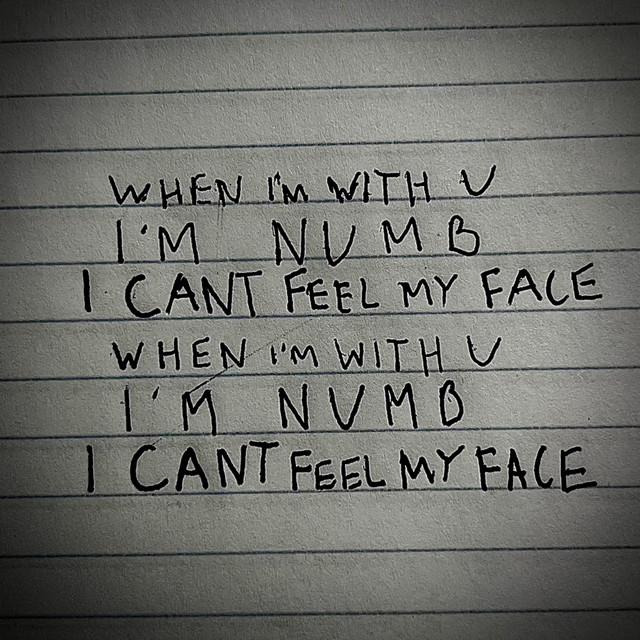 WHEN I'M WITH U
I'M NUMB
I CANT FEEL MY FACE
WHEN I'M WITH U
I'M NUMB
I CANT FEEL MY FACE